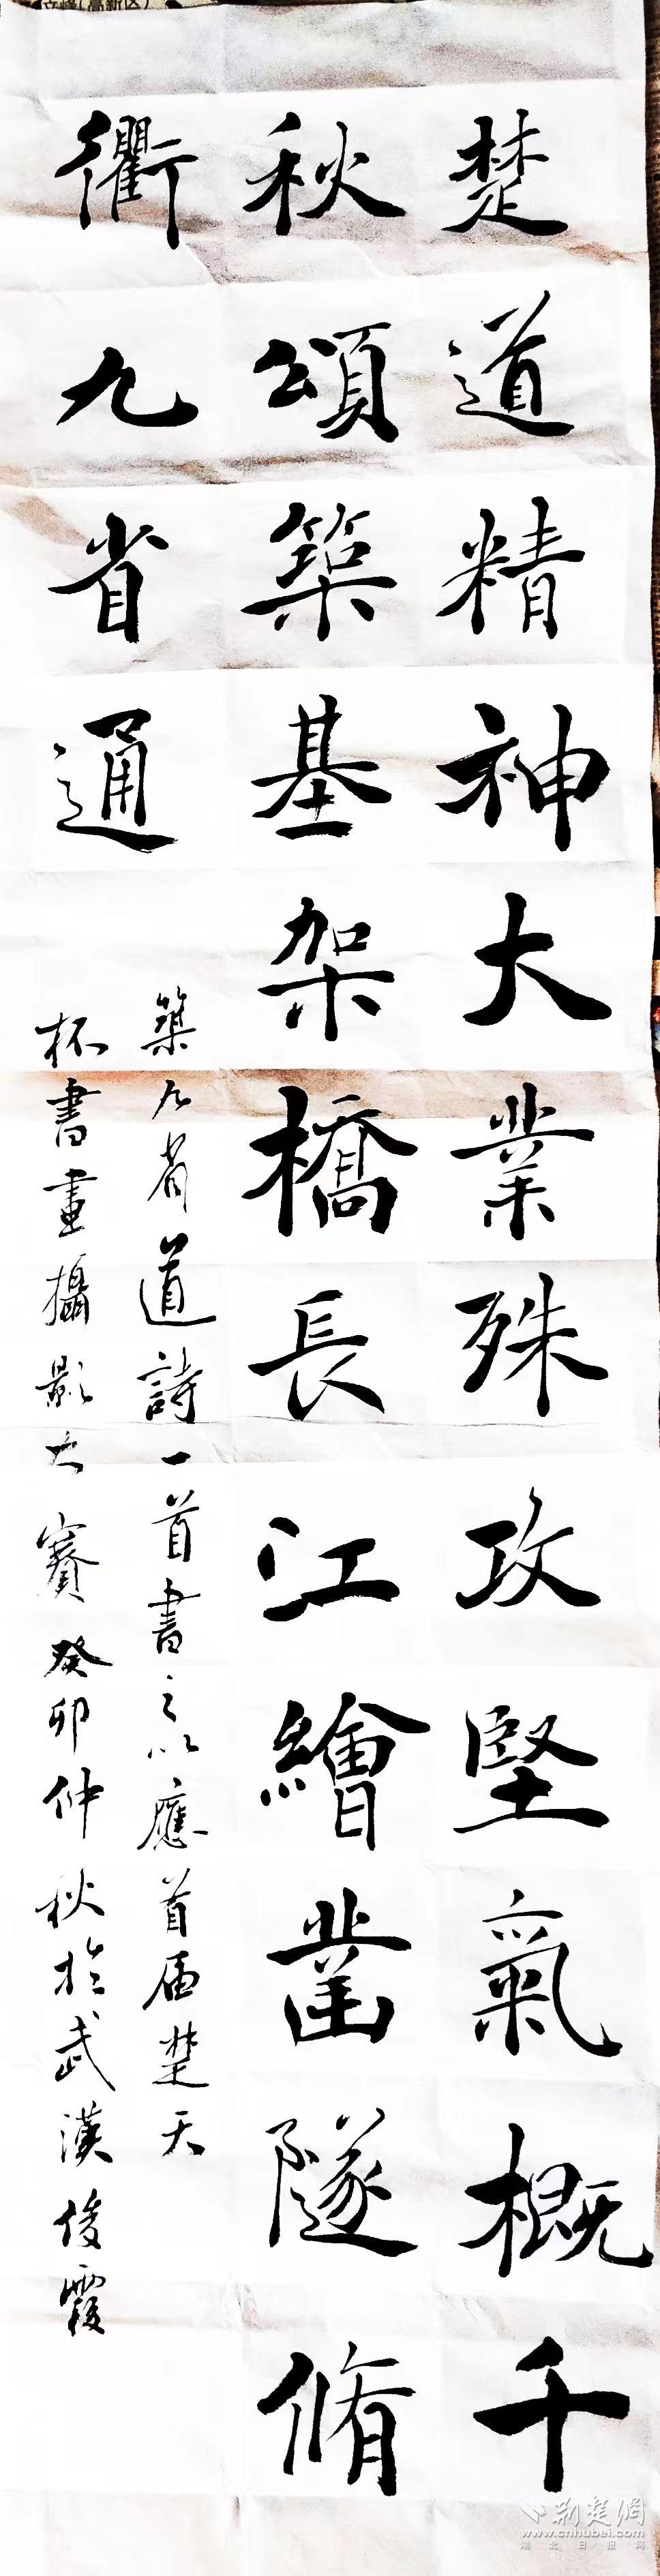 楚道精神大業殊攻堅氣概千
秋頌築基架橋長江繪凿隧脩
衢九省通
築九省道詩一首書之以應首届楚天
杯書畫攝影大賽癸卯仲秋於武漢俊霞
荆楚網
www.cnhubei.com
湖北日报网